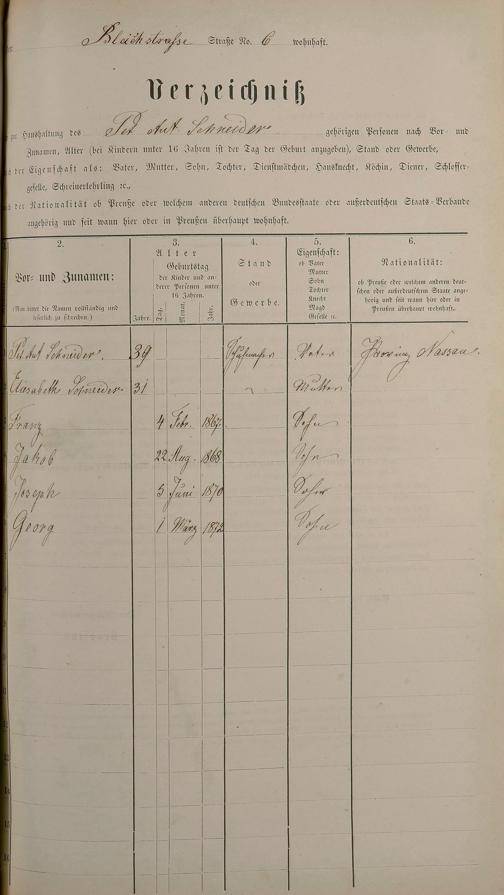 Bleichstrasse Straße No. 6 wohnhaft.
Verzeichniß
zur Haushaltung des Pet Ant Schneider gehörigen Personen nach Vor- und
Zunamen, Alter (bei Kindern unter 16 Jahren ist der Tag der Geburt anzugeben), Stand oder Gewerbe,
nach der Eigenschaft als: Vater, Mutter, Sohn, Tochter, Dienstmädchen, Hausknecht, Köchin, Diener, Schlosser-
geselle, Schreinerlehrling ꝛc.,
nach der Nationalität ob Preuße oder welchem anderen deutschen Bundesstaate oder außerdeutschen Staats-Verbande
angehörig und seit wann hier oder in Preußen überhaupt wohnhaft.
2. 3. 4. 5. 6.
Vor- und Zunamen:
(Man bittet die Namen vollständig und
leserlich zu schreiben.)
Alter
Geburtstag
der Kinder und an-
derer Personen unter
16 Jahren.
Jahre. Tag. Monat. Jahr.
Stand
oder
Gewerbe.
Eigenschaft:
ob Vater
Mutter
Sohn
Tochter
Knecht
Magd
Geselle ꝛc.
Nationalität:
ob Preuße oder welchem anderen deut-
schen oder außerdeutschen Staate ange-
hörig und seit wann hier oder in
Preußen überhaupt wohnhaft.
Pet Ant Schneider. 39 Schuhmacher Vater Provinz Nassau.
Elisabeth Schneider 31 Mutter
Franz 4 Febr. 1867 Sohn
Jakob 22 Aug. 1868 Sohn
Joseph 5 Juni 1870 Sohn
Georg 1 März 1872 Sohn